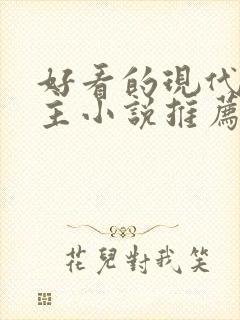 好看的现代
主小說推薦
花兒對我笑